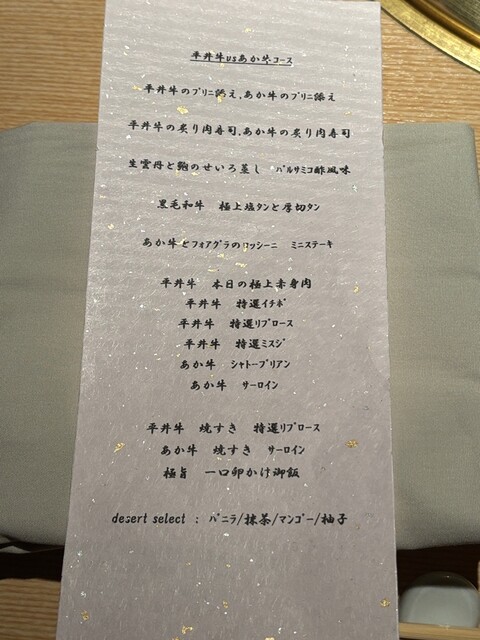 平井牛vsあか牛コース
平井牛のブリニ添え、あか牛のブリニ添え
平井牛の炙り肉寿司、あか牛の炙り肉寿司
生雲丹と鮑のせいろ蒸し　バルサミコ酢風味
黒毛和牛　極上塩タンと厚切タン
あか牛とフォアグラのロッシーニ　ミニステーキ
平井牛　本日の極上赤身肉
平井牛　特選イチボ
平井牛　特選リブロース
平井牛　特選ミスジ
あか牛　シャトーブリアン
あか牛　サーロイン
平井牛　焼すき　特選リブロース
あか牛　焼すき　サーロイン
極旨　一口卵かけ御飯
desert select : バニラ/抹茶/マンゴー/柚子